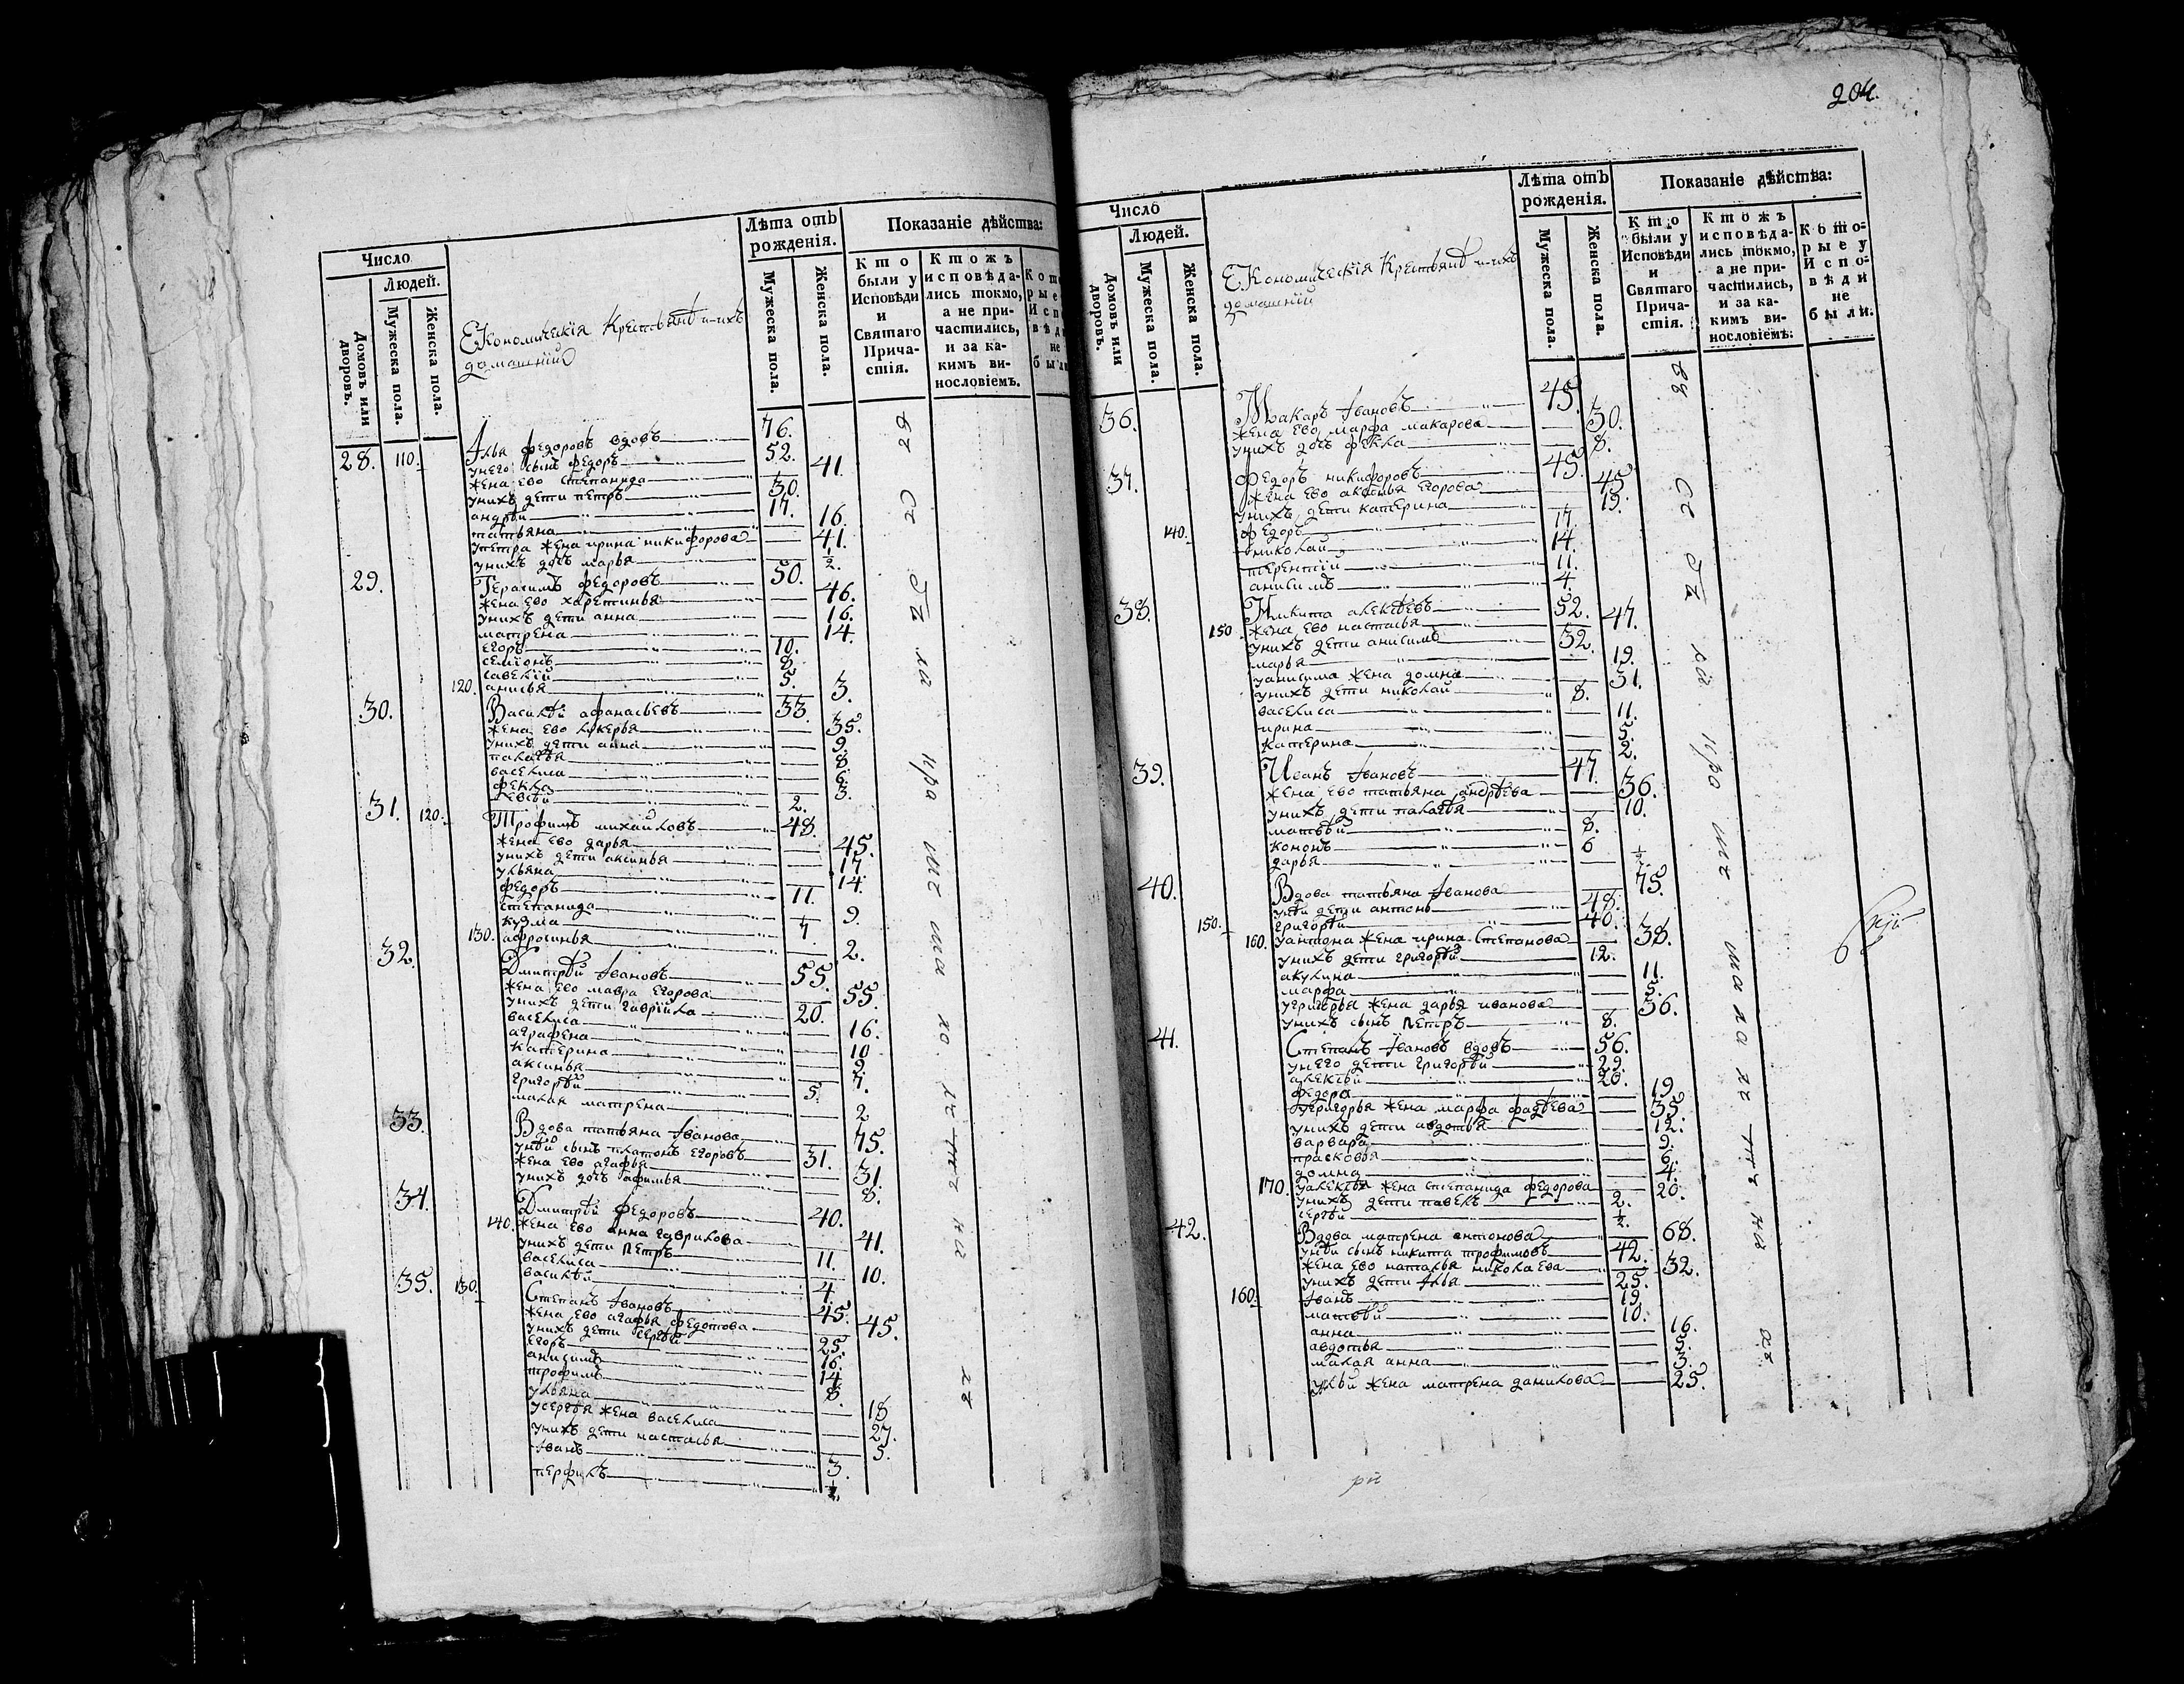 Число
Людей.
Домовъ или дворовъ.
Мужеска пола.
Женска пола.
Экономическія Крестьянѣ и ихъ
домашнїи
Лѣта отъ рожденія.
Мужеска пола.
Женска пола.
Показаніе дѣйства:
Кто были у Исповѣди и Святаго Прича-стія.
Ктожъ исповѣда-лись токмо, а не при-частились, и за ка-кимъ ви-нословіемъ.
28. 110. Ілья федоровъ вдовъ 76.
унего сынъ федоръ 52.
жена ево степанида 41.
унихъ дети петръ 30.
андрѣй 17.
татьяна 16.
упетра жена ирина никифорова 41.
унихъ дочь марья ½.
29. Герасимъ федоровъ 50.
жена ево харетинья 46.
унихъ дети анна 16.
матрена 14.
егоръ 10.
семіонъ 8.
савелїй 5.
120. анисья 3.
30. Василѣй афанасьевъ 33.
жена ево лукерья 35.
унихъ дети анна 9.
палагѣя 8.
василиса 6.
фекла 3.
2.
31. 120. Трофимъ михайловъ 48.
жена ево дарья 45.
унихъ дети аксинья 17.
ульяна 14.
федоръ 11.
степанида 9.
кузма 7.
130. афросинья 2.
32. Дмитрѣй Івановъ 55.
жена ево мавра егорова 55.
унихъ дети гаврїила 20.
василиса 16.
аграфена 10.
катерина 9.
аксинья 7.
григорѣй 5.
малая матрена 2.
33. Вдова татьяна Іванова 75.
унѣй сынъ платонъ егоровъ 31.
жена ево агафья 31.
унихъ дочь афимья 8.
34. Дмитрѣй федоровъ 40.
140. жена ево анна гаврилова 41.
унихъ дети петръ 11.
василиса 10.
василѣй 4.
35. 130. Степанъ Івановъ 45.
жена ево агафья федотова 45.
унихъ дети сергѣй 25.
егоръ 16.
анисимъ 14.
трофимъ 8.
ульяна 18.
усергѣя жена василиса 27.
унихъ дети настасья 5.
Іванъ 3.
перфилъ ½.
204.
Число
Людей.
Домовъ или дворовъ.
Мужеска пола.
Женска пола.
Экономическія Крестьянѣ и ихъ
домашнїи
Лѣта отъ рожденія.
Мужеска пола.
Женска пола.
Показаніе дѣйства:
Кто были у Исповѣди и Святаго Прича-стія.
Ктожъ исповѣда-лись токмо, а не при-частились, и за ка-кимъ ви-нословіемъ.
Кото-рые у Испо-вѣди не были.
36. Макаръ Івановъ 45.
жена ево марфа макарова 30.
унихъ дочь фекла 8.
37. федоръ никифоровъ 45.
жена ево авдотья егорова 45.
унихъ дети катерина 19.
140. федоръ 17.
николай 14.
терентїй 11.
анисимъ 4.
38. Никита алексѣевъ 52.
150. жена ево настасья 47.
унихъ дети анисимъ 32.
марья 19.
уанисима жена домна 31.
унихъ дети николай 8.
василиса 11.
ирина 5.
катерина 2.
39. Иванъ Івановъ 47.
жена ево татьяна андрѣева 36.
унихъ дети палагѣя 10.
матвѣй 8.
кононъ 6
дарья ½
40. Вдова татьяна Іванова 75.
унѣй дети антонъ 48.
150. григорѣй 40.
160. уантона жена ирина степанова 38.
унихъ дети григорѣй 12.
акулина 11.
марфа 5.
угригорья жена дарья иванова 36.
унихъ сынъ петръ 8.
41. Степанъ Івановъ вдовъ 56.
унего дети григорѣй 29.
алексѣй 20.
федора 19.
угригорья жена марфа фадѣева 35.
унихъ дети авдотья 12.
варвара 9.
прасковья 6.
домна 4.
170. уалексѣя жена степанида федорова 20.
унихъ дети павелъ 2.
сергѣй ½.
42. Вдова матрена антонова 68.
унѣй сынъ никита трофимовъ 42.
жена ево наталья николаева 32.
унихъ дети Ілья 25.
160. Іванъ 19.
матвѣй 10.
анна 16.
авдотья 5.
малая анна 3.
уильи жена матрена данилова 25.